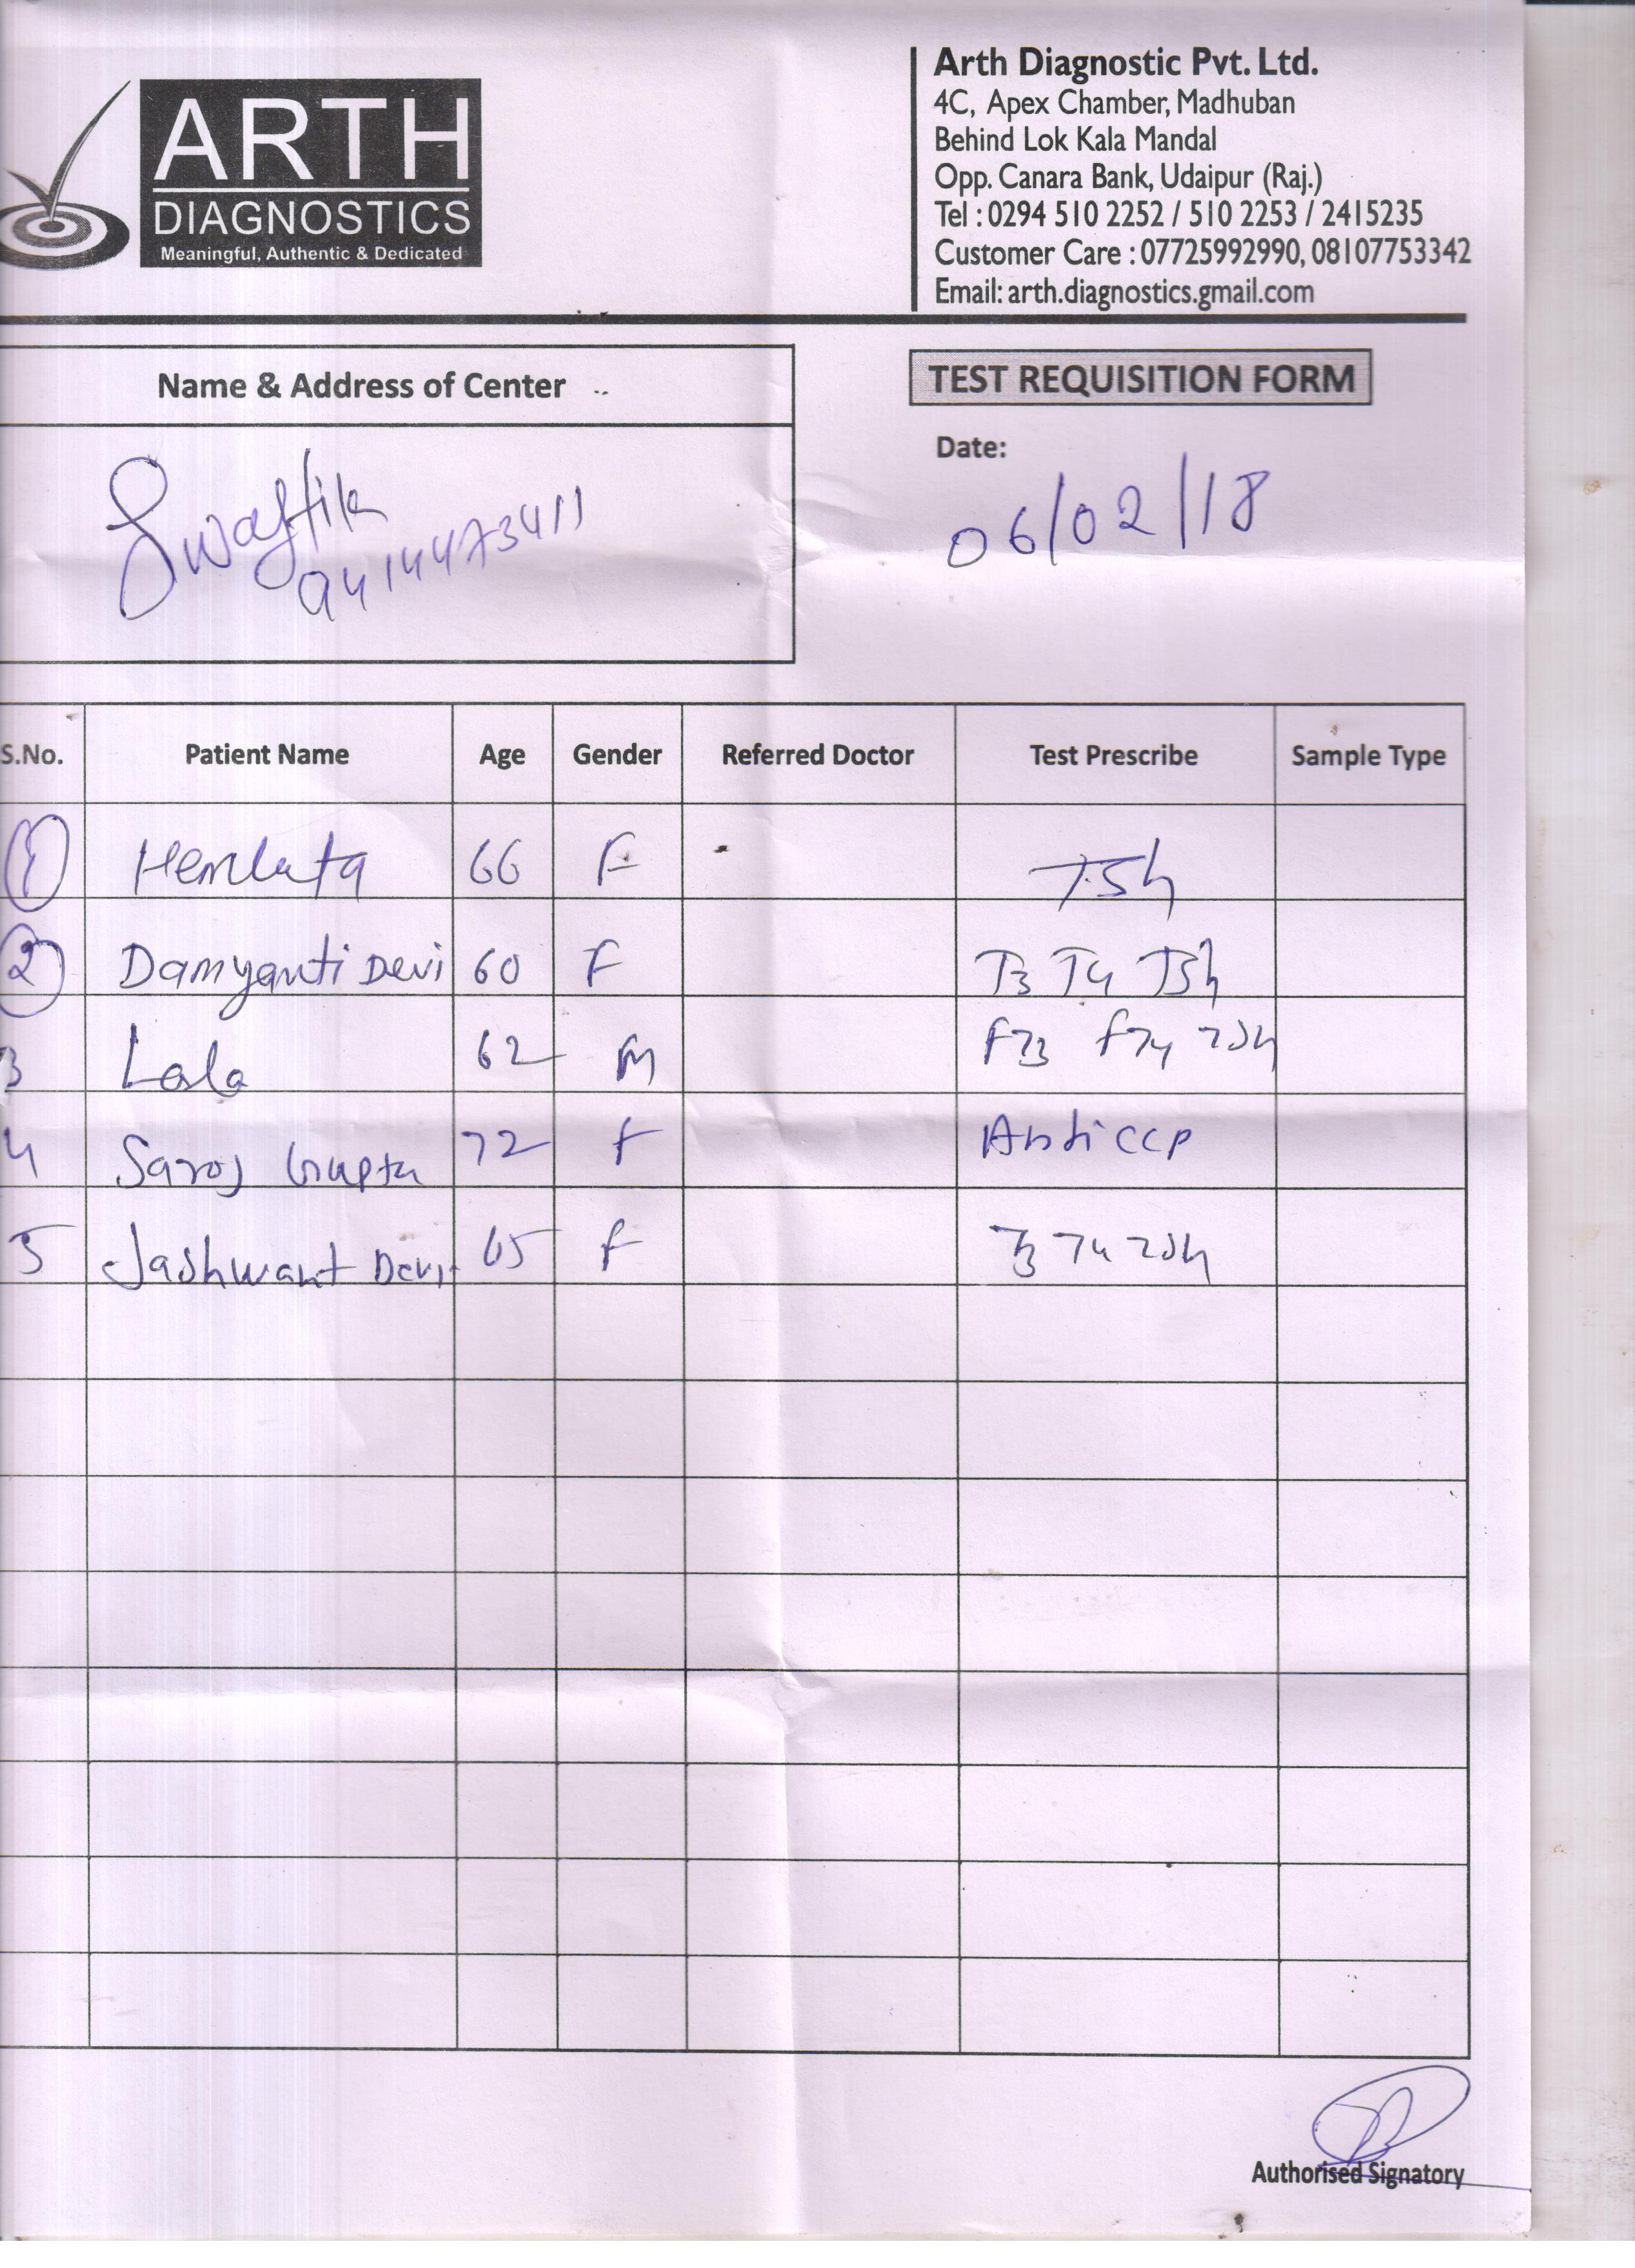 ARTH
DIAGNOSTICS
Meaningful, Authentic & Dedicated
Arth Diagnostic Pvt. Ltd.
4C, Apex Chamber, Madhuban
Behind Lok Kala Mandal
Opp. Canara Bank, Udaipur (Raj.)
Tel : 0294 510 2252 / 510 2253 / 2415235
Customer Care : 07725992990, 08107753342
Email: arth.diagnostics.gmail.com
Name & Address of Center
TEST REQUISITION FORM
Swaftik
9414473411
Date:
06/02/18
S.No. Patient Name Age Gender Referred Doctor Test Prescribe Sample Type
1 Hemlata 66 F TSh
2 Damyanti Devi 60 F T3 T4 TSh
3 Lala 62 M fT3 fT4 TSh
4 Saroj Gupta 72 f Anti CCP
5 Jashwant Devi 65 f T3 T4 TSh
Authorised Signatory